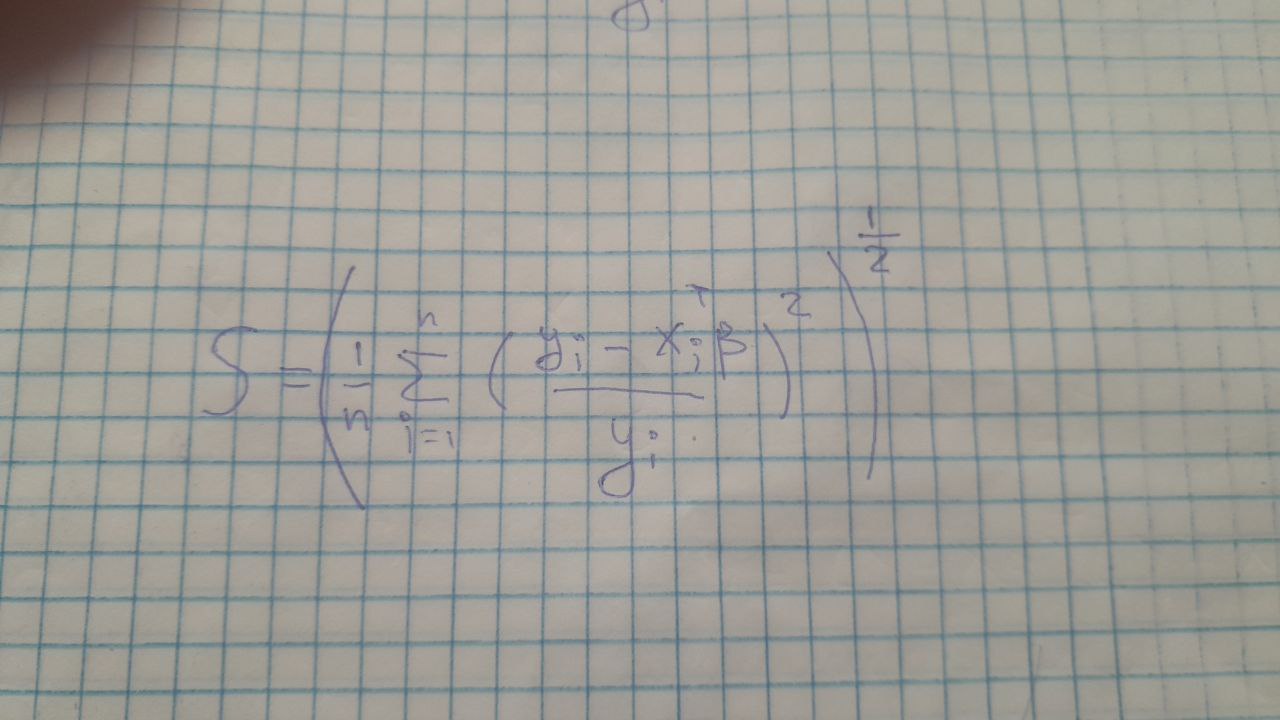 S = ( 1/n Σ_{i=1}^{n} ( (y_i − x_i^T β) / y_i )^2 )^{1/2}